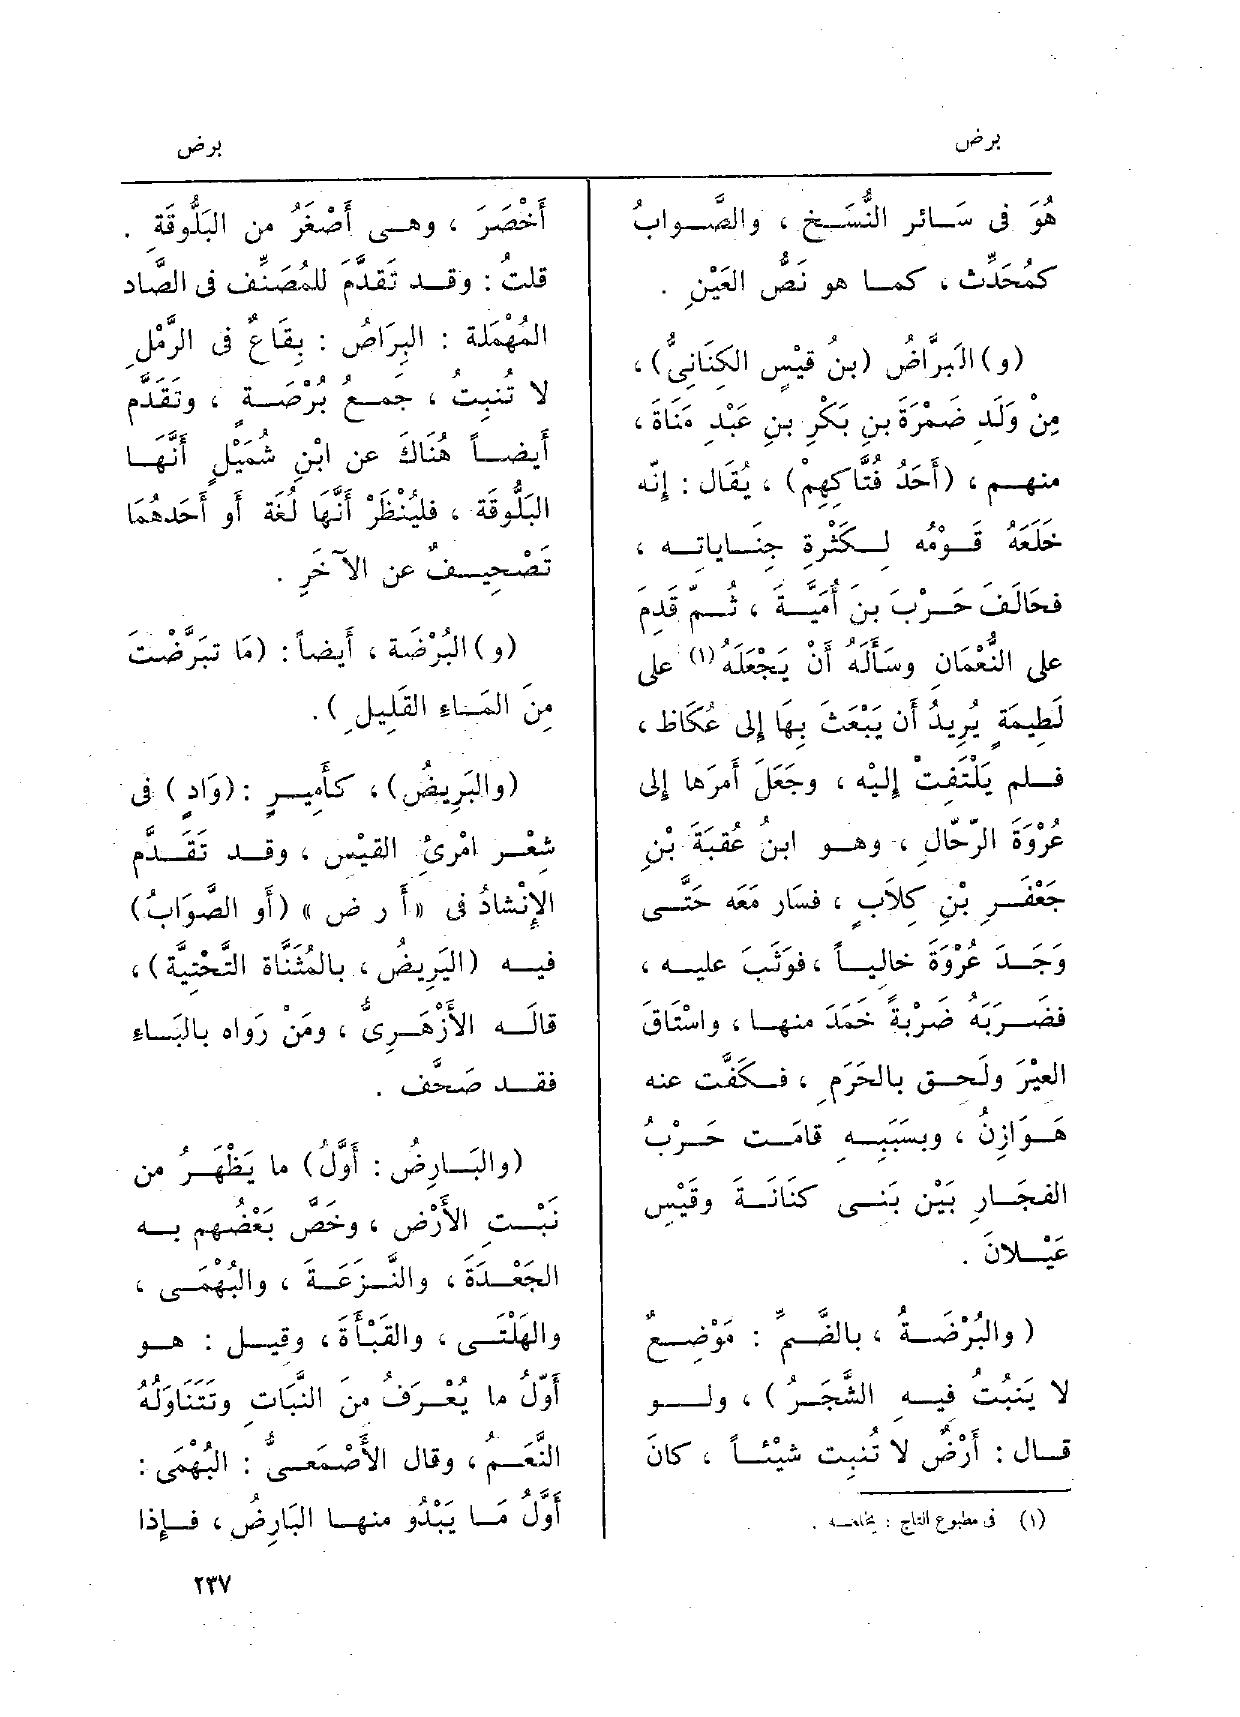 برض
هُوَ فى سَائر النُّسَخ ، والصَّوابُ
كمُحَدِّث ، كما هو نَصُّ العَيْنِ .
(و) الَبرَّاضُ (بنُ قيْسٍ الكِنَانِىُّ) ،
مِنْ وَلَدِ ضَمْرَةَ بنِ بَكْرِ بنِ عَبْدِ مَنَاةَ ،
منهم ، (أَحَدُ فُتَّاكِهِمْ) ، يُقَال : إنّه
خَلَعَهُ قَوْمُه لِكَثْرةِ جِنَاياتِه ،
فحَالَفَ حَرْبَ بنَ أُمَيَّةَ ، ثُمّ قَدِمَ
على النُّعْمَانِ وسَأَلَهُ أَنْ يَجْعَلَهُ (١) على
لَطِيمَةٍ يُرِيدُ أَن يَبْعَثَ بِهَا إلى عُكَاظ ،
فلم يَلْتَفِتْ إليْه ، وجَعَلَ أَمرَهَا إلى
عُرْوَةَ الرّحّالِ ، وهو ابنُ عُقبَةَ بْنِ
جَعْفَرِ بْنِ كِلاَبٍ ، فسَار مَعَه حَتَّى
وَجَدَ عُرْوَةَ خالياً ، فوَثَبَ عليه ،
فضَرَبَهُ ضَرْبةً خَمَدَ منها ، واسْتَاقَ
العِيْرَ ولَحِق بالحَرَمِ ، فكَفَّت عنه
هَوَازِنُ ، وبسَبَبِهِ قامَت حَرْبُ
الفِجَارِ بَيْن بَنِى كنَانَةَ وقَيْسِ
عَيْلانَ .
( والبُرْضَةُ ، بالضَّمِّ : مَوْضِعٌ
لا يَنبُت فيه الشَّجَرُ ) ، ولو
قال : أَرْضٌ لا تُنبِت شيْئاً ، كانَ
(١) فى مطبوع التاج : يخلعه .
برض
أَخْضَرَ ، وهى أَصْغَرُ من البَلُّوقَةِ .
قلتُ : وقد تَقدَّمَ للمُصَنِّف فى الصَّاد
المُهْمَلة : البِرَاصُ : بِقَاعٌ فى الرَّمْلِ
لا تُنبِتُ ، جَمعُ بُرْصَةٍ ، وتَقَدَّم
أَيضاً هُنَاكَ عن ابْنِ شُمَيْلٍ أَنَّهَا
البَلُّوقَة ، فليُنْظَرْ أَنَّهَا لُغَة أَو أَحَدهُمَا
تَصْحِيفٌ عن الآخَرِ .
(و) البُرْضَة ، أَيضاً : (مَا تبَرَّضْتَ
مِنَ المَاء القَلِيلِ ) .
(والبَرِيضُ) ، كأَمِيرٍ : (وَادٍ) فى
شِعْر امْرِئُ القيْسِ ، وقد تَقَدَّم
الإنْشادُ فى «أ ر ض» (أَو الصَّوَابُ)
فيه (اليَرِيضُ ، بالمُثنَّاة التَّحْتِيَّة) ،
قالَه الأَزْهَرِىُّ ، ومَنْ رَواه بالبَاء
فقد صَحَّف .
(والبَارِضُ : أَوَّلُ) ما يَظْهَرُ من
نَبْتِ الأَرْضِ ، وخَصَّ بَعْضُهم به
الجَعْدَةَ ، والنَّزَعَةَ ، والبُهْمَى ،
والهَلْتَى ، والقَبْأَةَ ، وقيل : هو
أَوّلُ ما يُعْرَفُ منَ النَّبَاتِ وتَتَنَاوَلُهُ
النَّعَمُ ، وقال الأَصْمَعِىُّ : البُهْمَى :
أَوَّلُ مَا يَبْدُو منها البَارِضُ ، فإِذا
٢٣٧